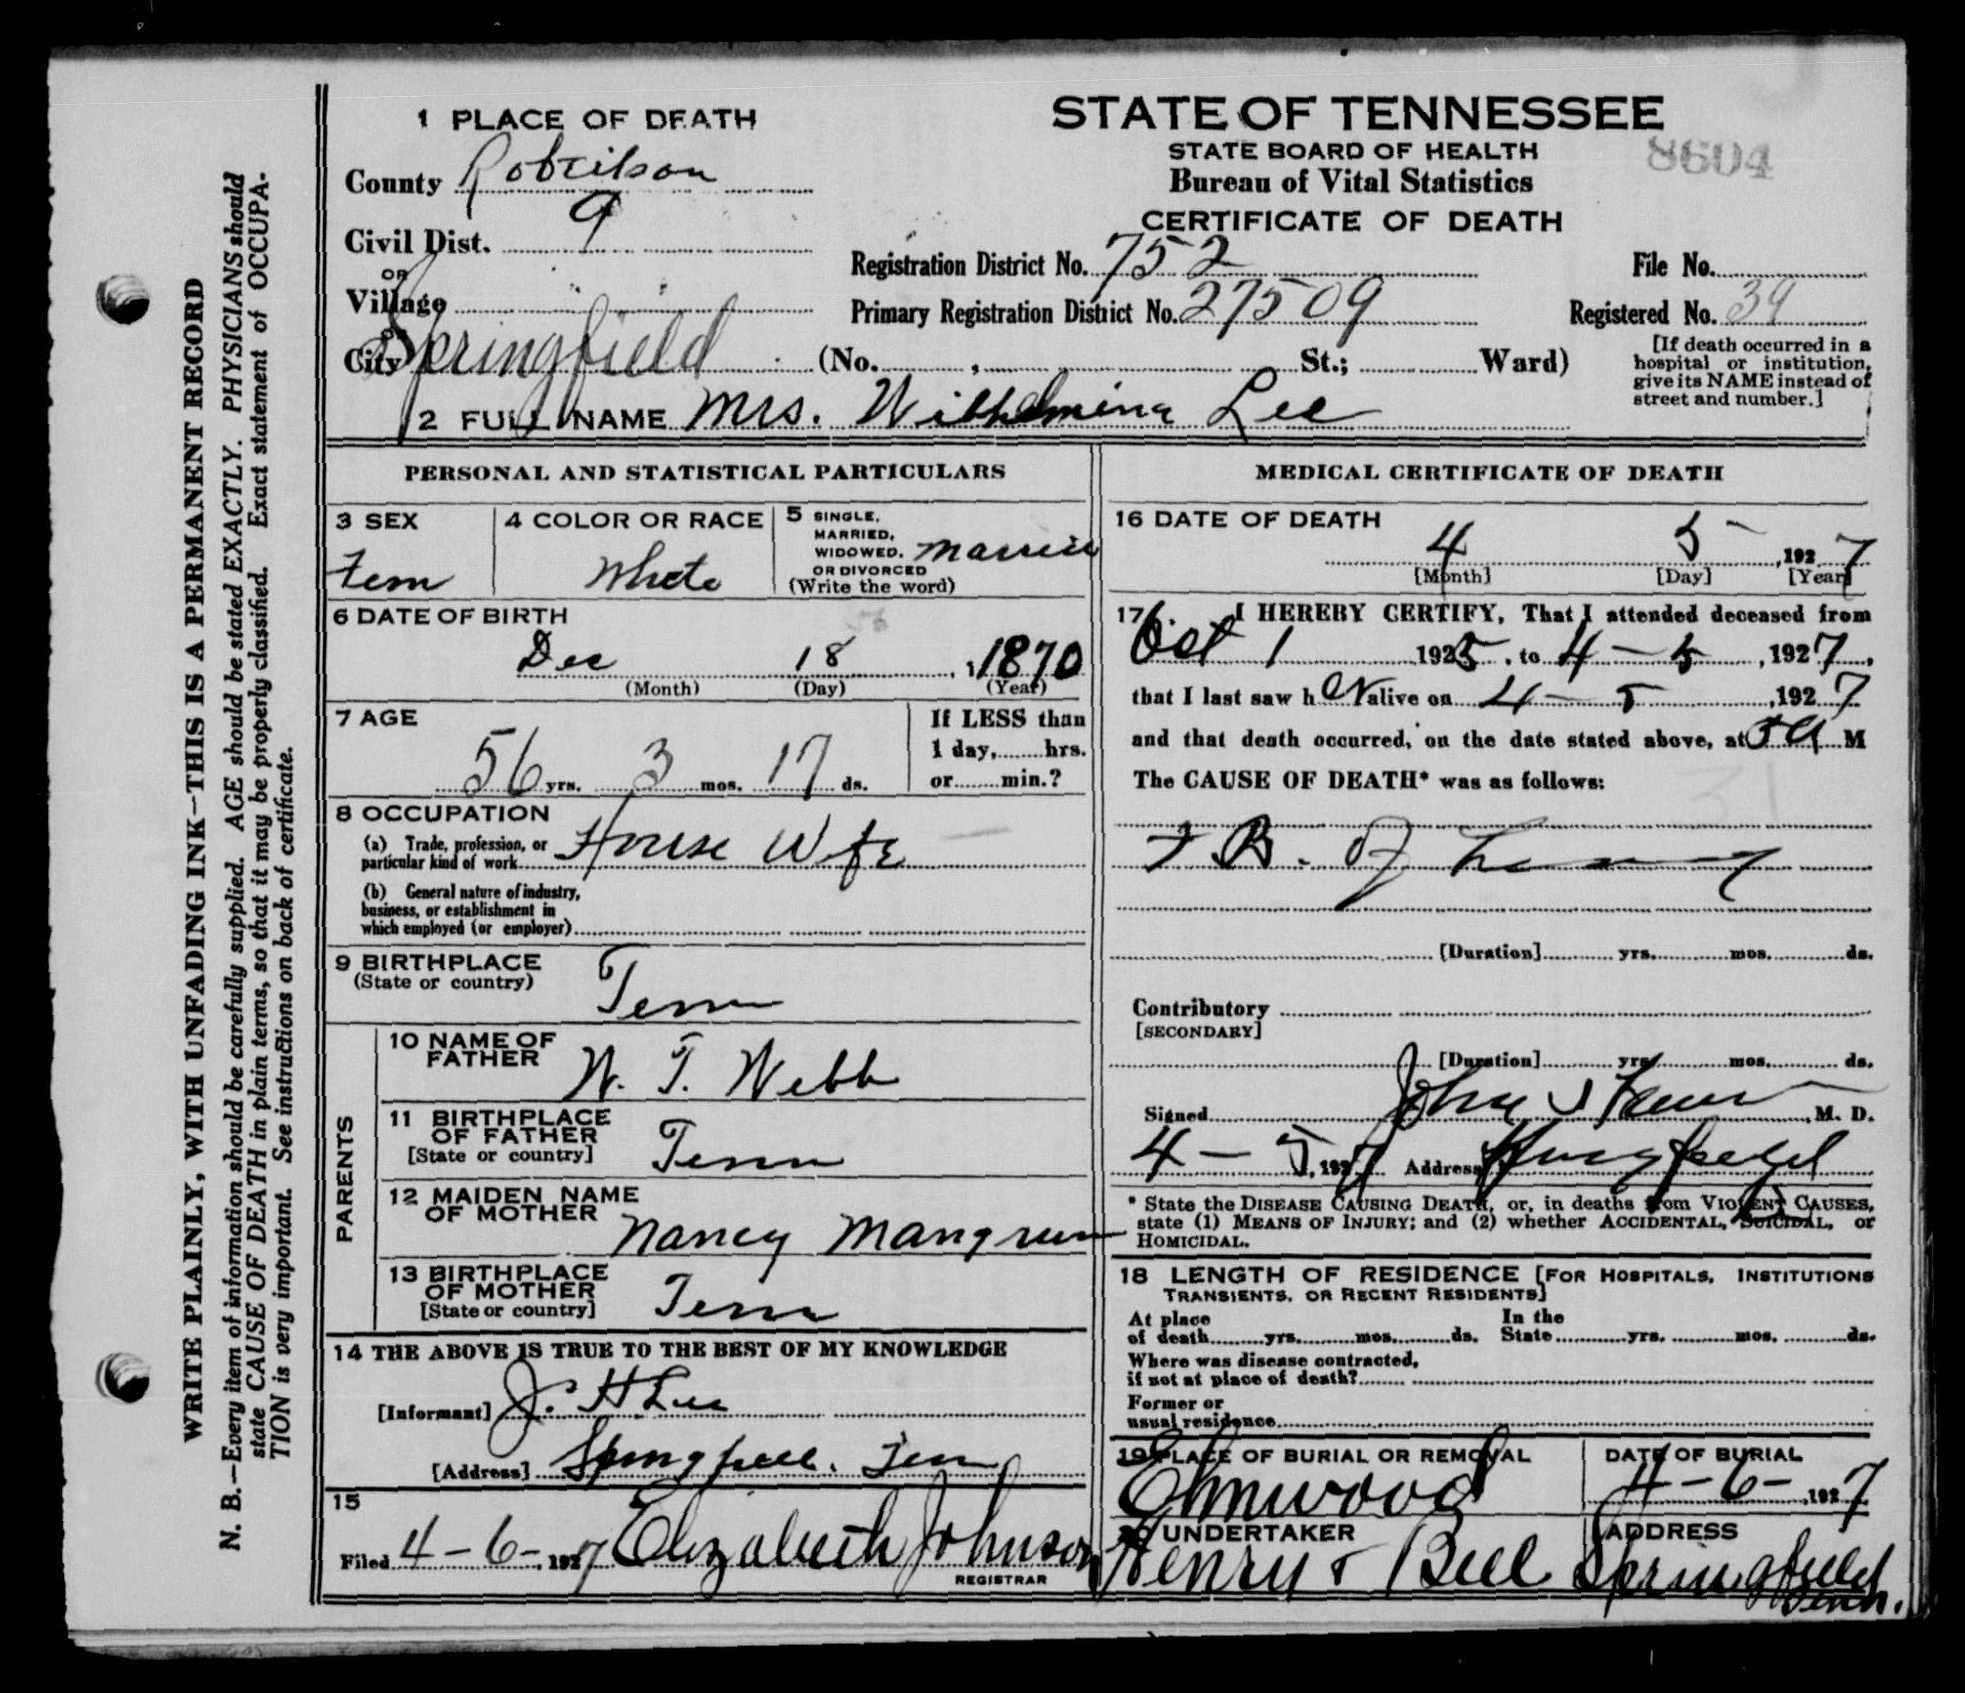 WRITE PLAINLY, WITH UNFADING INK—THIS IS A PERMANENT RECORD
N. B.—Every item of information should be carefully supplied. AGE should be stated EXACTLY. PHYSICIANS should
state CAUSE OF DEATH in plain terms, so that it may be properly classified. Exact statement of OCCUPA-
TION is very important. See instructions on back of certificate.
1 PLACE OF DEATH
County Robertson
Civil Dist. 9
OR
Village
OR
City Springfield (No. , St.; Ward)
STATE OF TENNESSEE
STATE BOARD OF HEALTH
Bureau of Vital Statistics
CERTIFICATE OF DEATH
8604
Registration District No. 752
File No.
Primary Registration District No. 27509
Registered No. 39
[If death occurred in a
hospital or institution,
give its NAME instead of
street and number.]
2 FULL NAME Mrs. Wilhelmina Lee
PERSONAL AND STATISTICAL PARTICULARS
3 SEX
Fem
4 COLOR OR RACE
White
5 SINGLE,
MARRIED,
WIDOWED,
OR DIVORCED
(Write the word)
Married
6 DATE OF BIRTH
56
Dec 18, 1870
(Month) (Day) (Year)
7 AGE
56 yrs. 3 mos. 17 ds.
If LESS than
1 day, hrs.
or min.?
8 OCCUPATION
(a) Trade, profession, or
particular kind of work House Wife
(b) General nature of industry,
business, or establishment in
which employed (or employer)
9 BIRTHPLACE
(State or country)
Tenn
PARENTS
10 NAME OF
FATHER
W. T. Webb
11 BIRTHPLACE
OF FATHER
[State or country]
Tenn
12 MAIDEN NAME
OF MOTHER
Nancy Mangrum
13 BIRTHPLACE
OF MOTHER
[State or country]
Tenn
14 THE ABOVE IS TRUE TO THE BEST OF MY KNOWLEDGE
[Informant] J. H Lee
[Address] Springfield. Tenn
15
Filed 4-6-, 1927 Elizabeth Johnson
REGISTRAR
MEDICAL CERTIFICATE OF DEATH
16 DATE OF DEATH
4 5 , 1927
[Month] [Day] [Year]
17 I HEREBY CERTIFY, That I attended deceased from
Oct 1 1925, to 4-5, 1927,
that I last saw her alive on 4-5, 1927
and that death occurred, on the date stated above, at M
The CAUSE OF DEATH* was as follows:
31
T B. of
[Duration] yrs. mos. ds.
Contributory
[SECONDARY]
[Duration] yrs. mos. ds.
Signed John , M. D.
4-5, 1927 Address Springfield
* State the DISEASE CAUSING DEATH, or, in deaths from VIOLENT CAUSES,
state (1) MEANS OF INJURY; and (2) whether ACCIDENTAL, SUICIDAL, or
HOMICIDAL.
18 LENGTH OF RESIDENCE [FOR HOSPITALS, INSTITUTIONS
TRANSIENTS, OR RECENT RESIDENTS]
At place
of death yrs. mos. ds.
In the
State yrs. mos. ds.
Where was disease contracted,
if not at place of death?
Former or
usual residence
19 PLACE OF BURIAL OR REMOVAL
Elmwood
DATE OF BURIAL
4-6-, 1927
20 UNDERTAKER
Henry & Bell
ADDRESS
Springfield
Tenn.